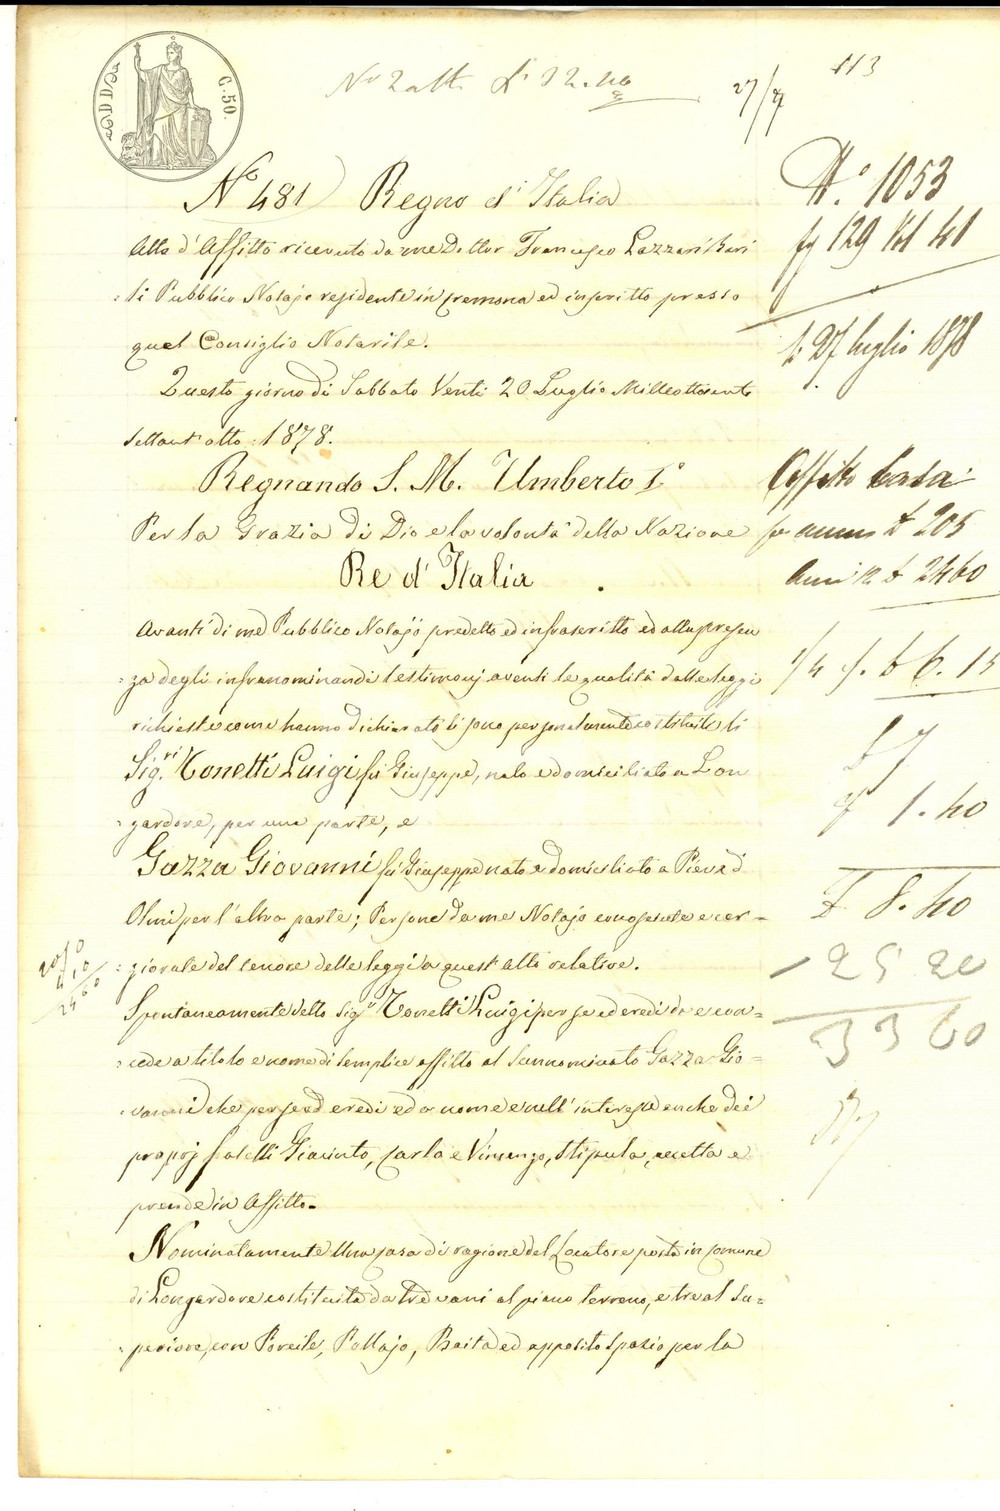 C. 50.
113
27/7
N.° 481 Regno d'Italia
Atto d'Affitto ricevuto da me Dottor Francesco Lazzari
Pubblico Notajo residente in Cremona ed inscritto presso
quel Consiglio Notarile.
Questo giorno di Sabbato Venti 20 Luglio Milleottocento
settant'otto 1878.
Regnando S. M. Umberto I°
Per la Grazia di Dio e la volontà della Nazione
Re d'Italia
Avanti di me Pubblico Notajo predetto ed infrascritto ed alla presen
=za degli infranominandi testimonj aventi le qualità dalle leggi
richieste come hanno dichiarato si sono personalmente costituiti li
Sig.ri Tonetti Luigi fu Giuseppe, nato e domiciliato a Lon
=gardore, per una parte, e
Gazza Giovanni fu Giuseppe nato e domiciliato a Pieve d'
Olmi per l'altra parte; Persone da me Notajo conosciute e
del tenore delle leggi a quest'atto relative.
Spontaneamente detto Sig.r Tonetti Luigi per se ed eredi dà e con=
=cede a titolo e nome di semplice affitto al sunnominato Gazza Gio=
=vanni che per se ed eredi ed a nome e nell'interesse anche dei
proprj fratelli Giacinto, Carlo e Vincenzo, stipula, accetta e
prende in Affitto.
Nominatamente Una casa di ragione del Locatore posta in Comune
di Longardore costituita da tre vani al piano terreno, e tre al Su=
=periore, con Porcile, Pollajo, Baita ed apposito spazio per la
N.° 1053
fg 129 Vol 41
li 27 luglio 1878
Affitto Casa
per annue £ 205
Anni 12 £ 2460
1/4 £ 6. 15
1. 40
£ 8. 40
25 20
33 60